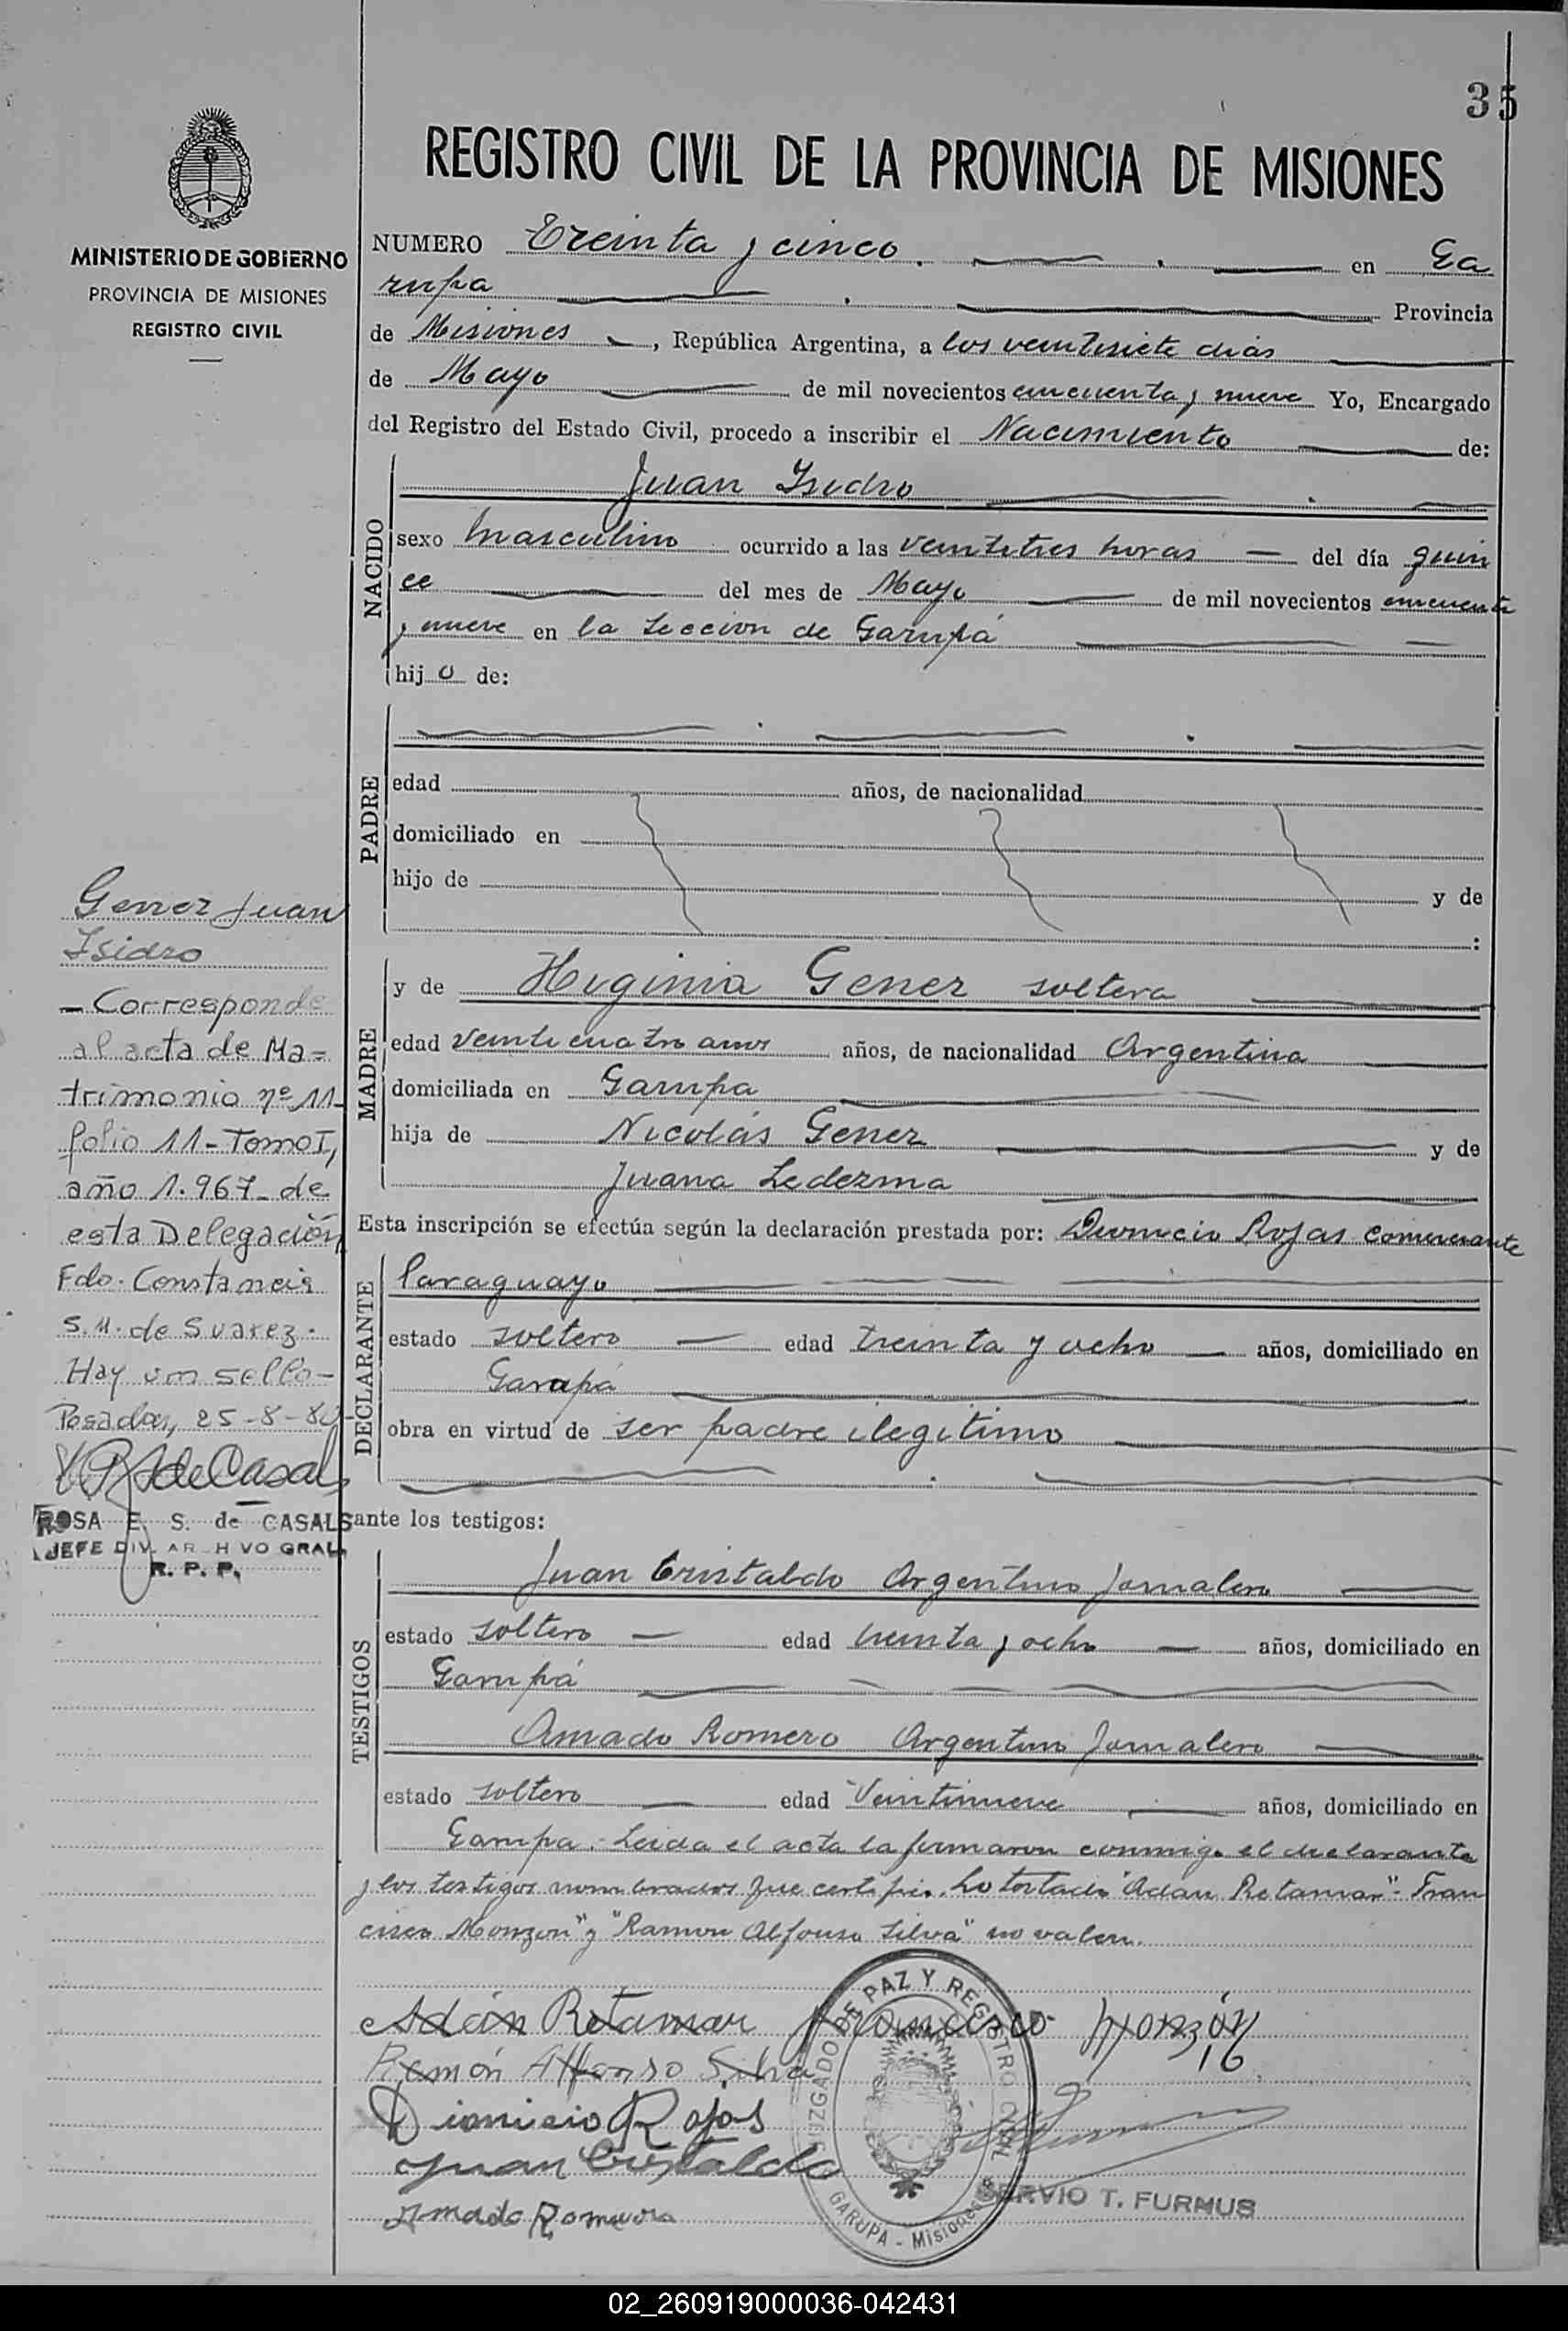 35
REGISTRO CIVIL DE LA PROVINCIA DE MISIONES
MINISTERIO DE GOBIERNO
PROVINCIA DE MISIONES
REGISTRO CIVIL
NUMERO Treinta y cinco. en Ga
rupa Provincia
de Misiones, República Argentina, a los veintisiete dias
de Mayo de mil novecientos cincuenta y nueve Yo, Encargado
del Registro del Estado Civil, procedo a inscribir el Nacimiento de:
NACIDO
Juan Isidro
sexo masculino ocurrido a las veintitres horas del día quin
ce del mes de Mayo de mil novecientos cincuenta
y nueve en la Seccion de Garupá
hijo de:
PADRE
edad años, de nacionalidad
domiciliado en
hijo de y de
:
MADRE
y de Higinia Gener soltera
edad veinticuatro años años, de nacionalidad Argentina
domiciliada en Garupa
hija de Nicolás Gener y de
Juana Ledezma
Esta inscripción se efectúa según la declaración prestada por: Dionicio Rojas comerciante
DECLARANTE
Paraguayo
estado soltero edad treinta y ocho años, domiciliado en
Garupá
obra en virtud de ser padre ilegitimo
ante los testigos:
TESTIGOS
Juan Cristaldo Argentino Jornalero
estado soltero edad treinta y ocho años, domiciliado en
Garupá
Amado Romero Argentino Jornalero
estado soltero edad Veintinueve años, domiciliado en
Garupa. Leida el acta la firmaron conmigo el declarante
y los testigos nombrados que certifico. Lo testado "Adan Retamar"- Fran
cisco Monzon" y "Ramon Alfonso Silva" no valen.
Adán Retamar Francisco Monzón
Ramón Alfonso Silva
Dionicio Rojas
Juan Cristaldo
Amado Romero
JUZGADO DE PAZ Y REGISTRO CIVIL
GARUPA - Misiones
SERVIO T. FURMUS
Gener Juan
Isidro
- Corresponde
al acta de Ma=
trimonio nº 11-
folio 11- Tomo I,
año 1.967- de
esta Delegación
Fdo. Constancia
S.M. de Suarez.
Hay un sello-
Posadas, 25-8-80
de Casals
ROSA E. S. de CASALS
JEFE DIV. ARCHIVO GRAL.
R. P. P.
02_260919000036-042431